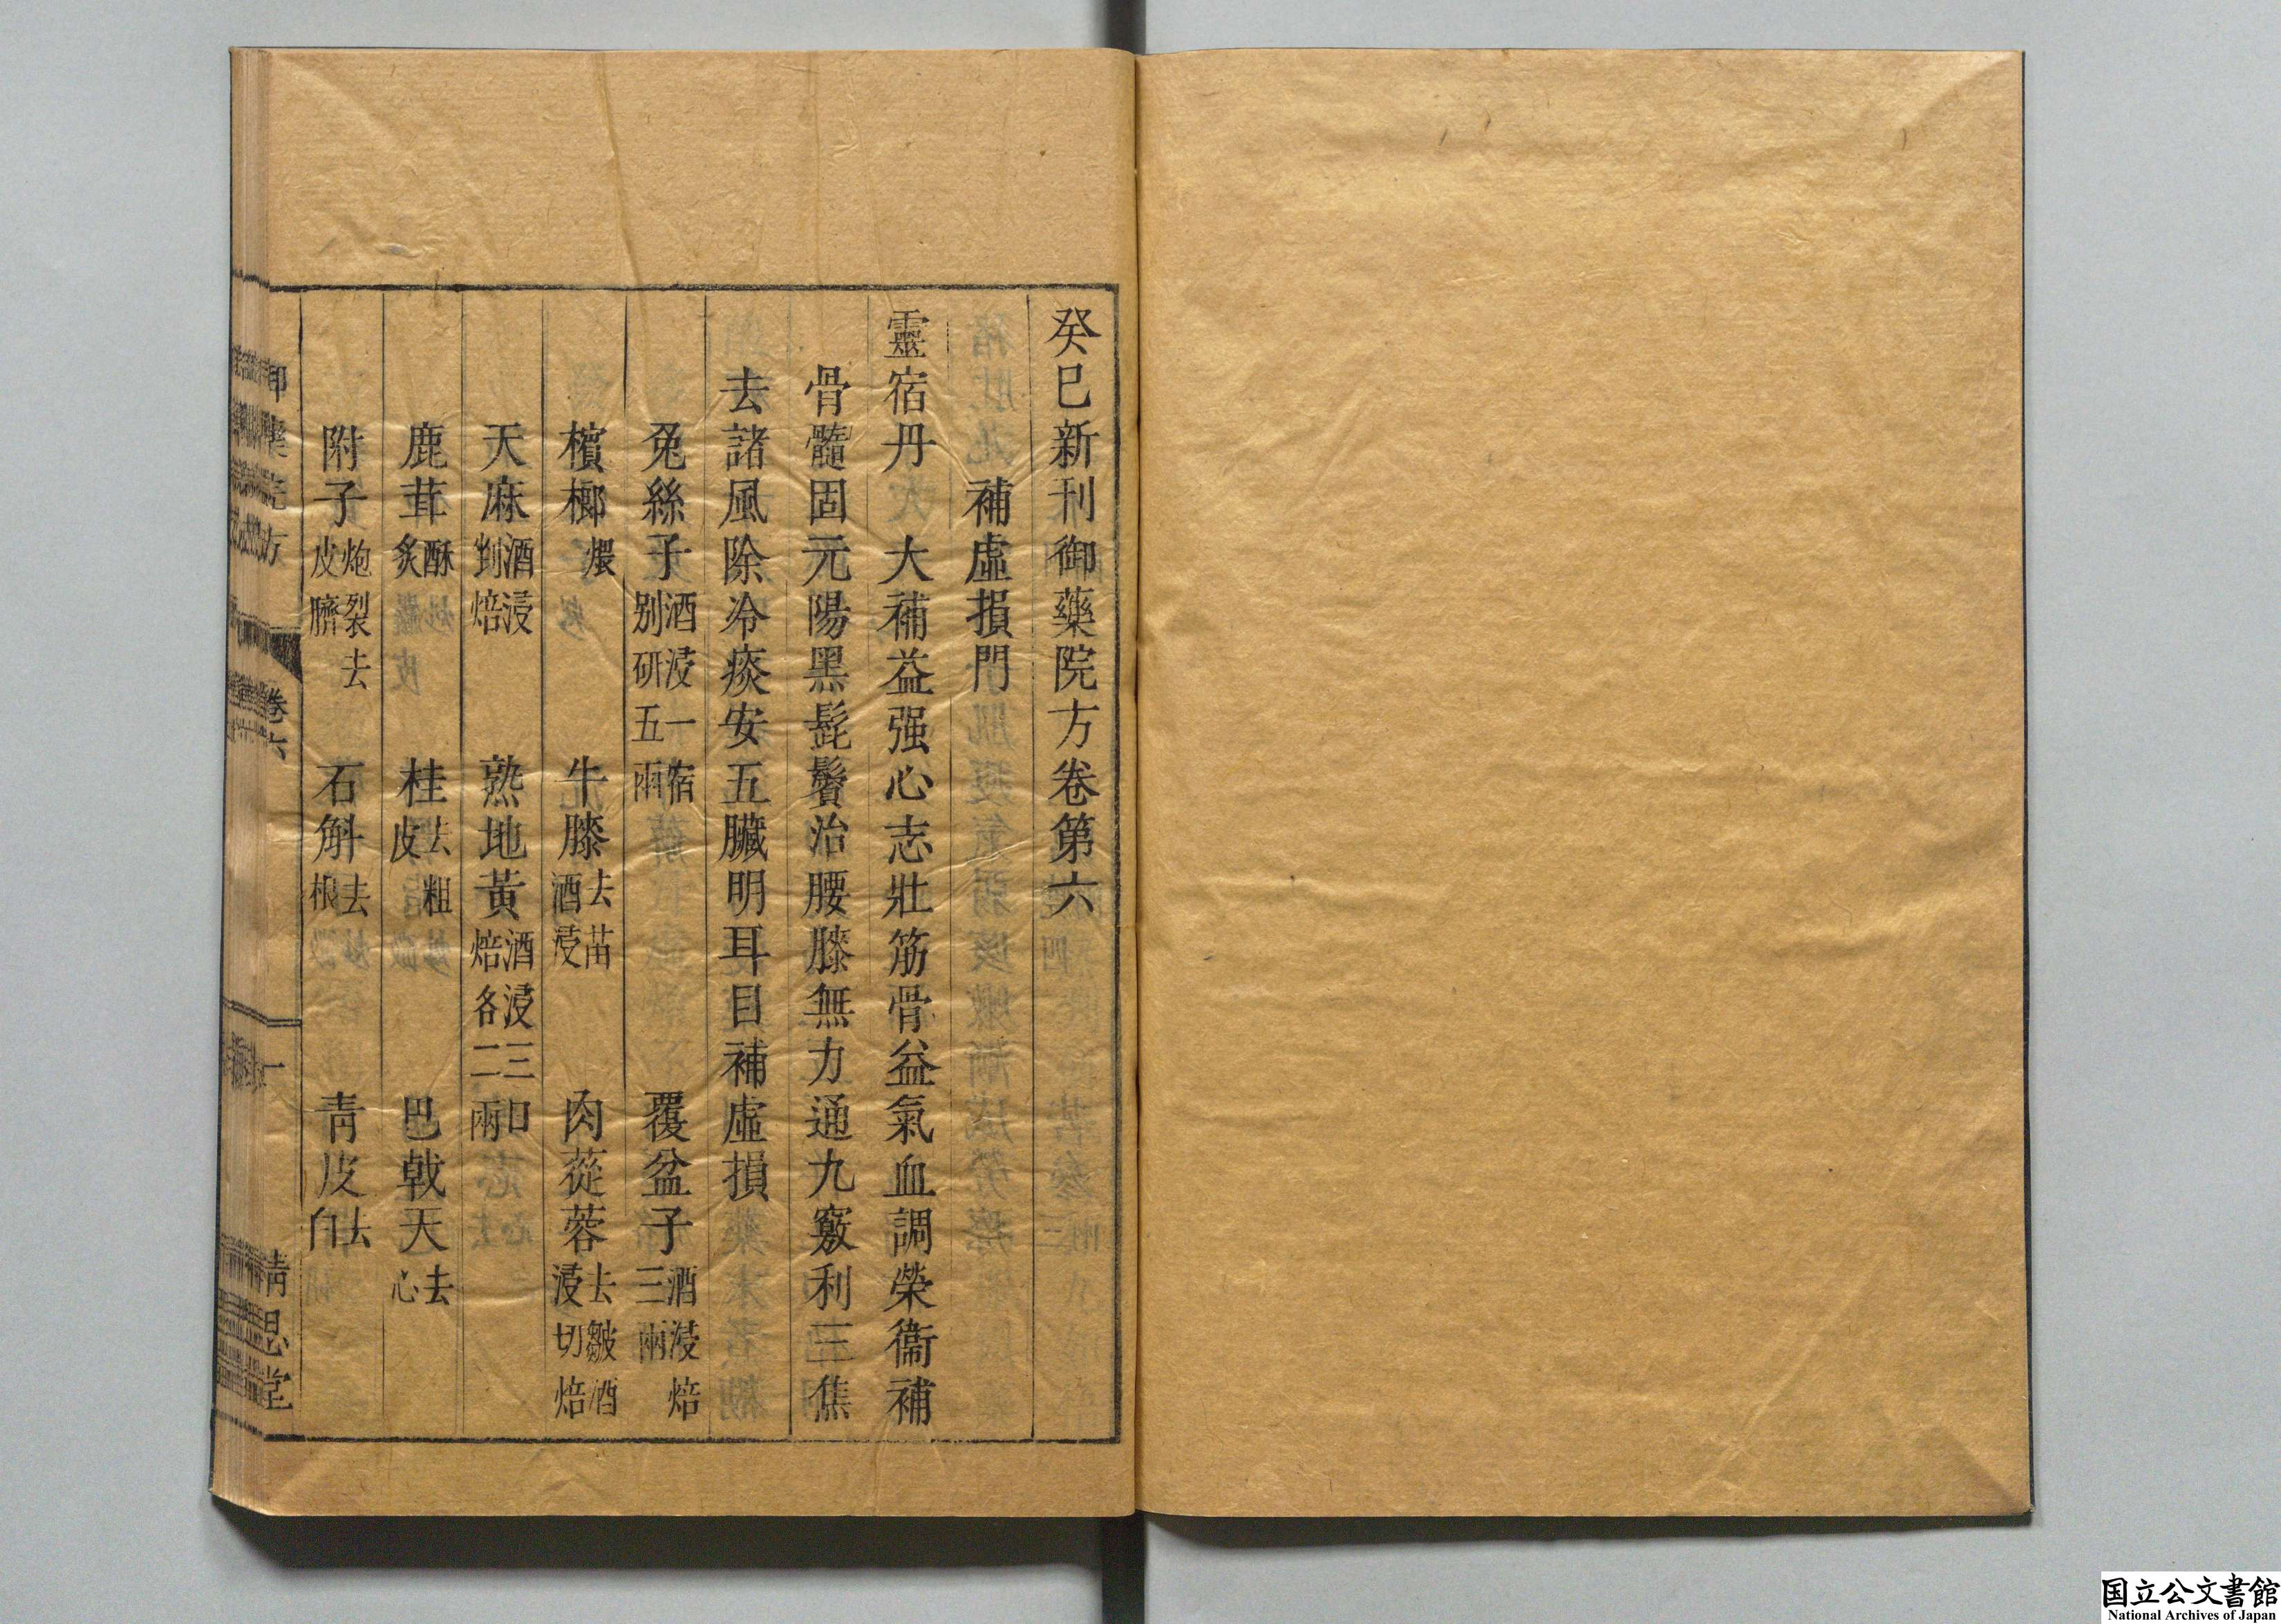 癸巳新刊御藥院方卷第六
補虛損門
靈宿丹 大補益强心志壯筋骨益氣血調榮衞補
骨髓固元陽黑髭鬢治腰膝無力通九竅利三焦
去諸風除冷痰安五臟明耳目補虛損
兔絲子酒浸一宿別研五兩 覆盆子酒浸焙三兩
檳榔煨 牛膝去苗酒浸 肉蓯蓉去皺酒浸切焙
天麻酒浸剉焙 熟地黃酒浸三日焙各二兩
鹿茸酥炙 桂去粗皮 巴戟天去心
附子炮裂去皮臍 石斛去根 青皮去白
御藥院方 卷六 一 精思堂
国立公文書館
National Archives of Japan